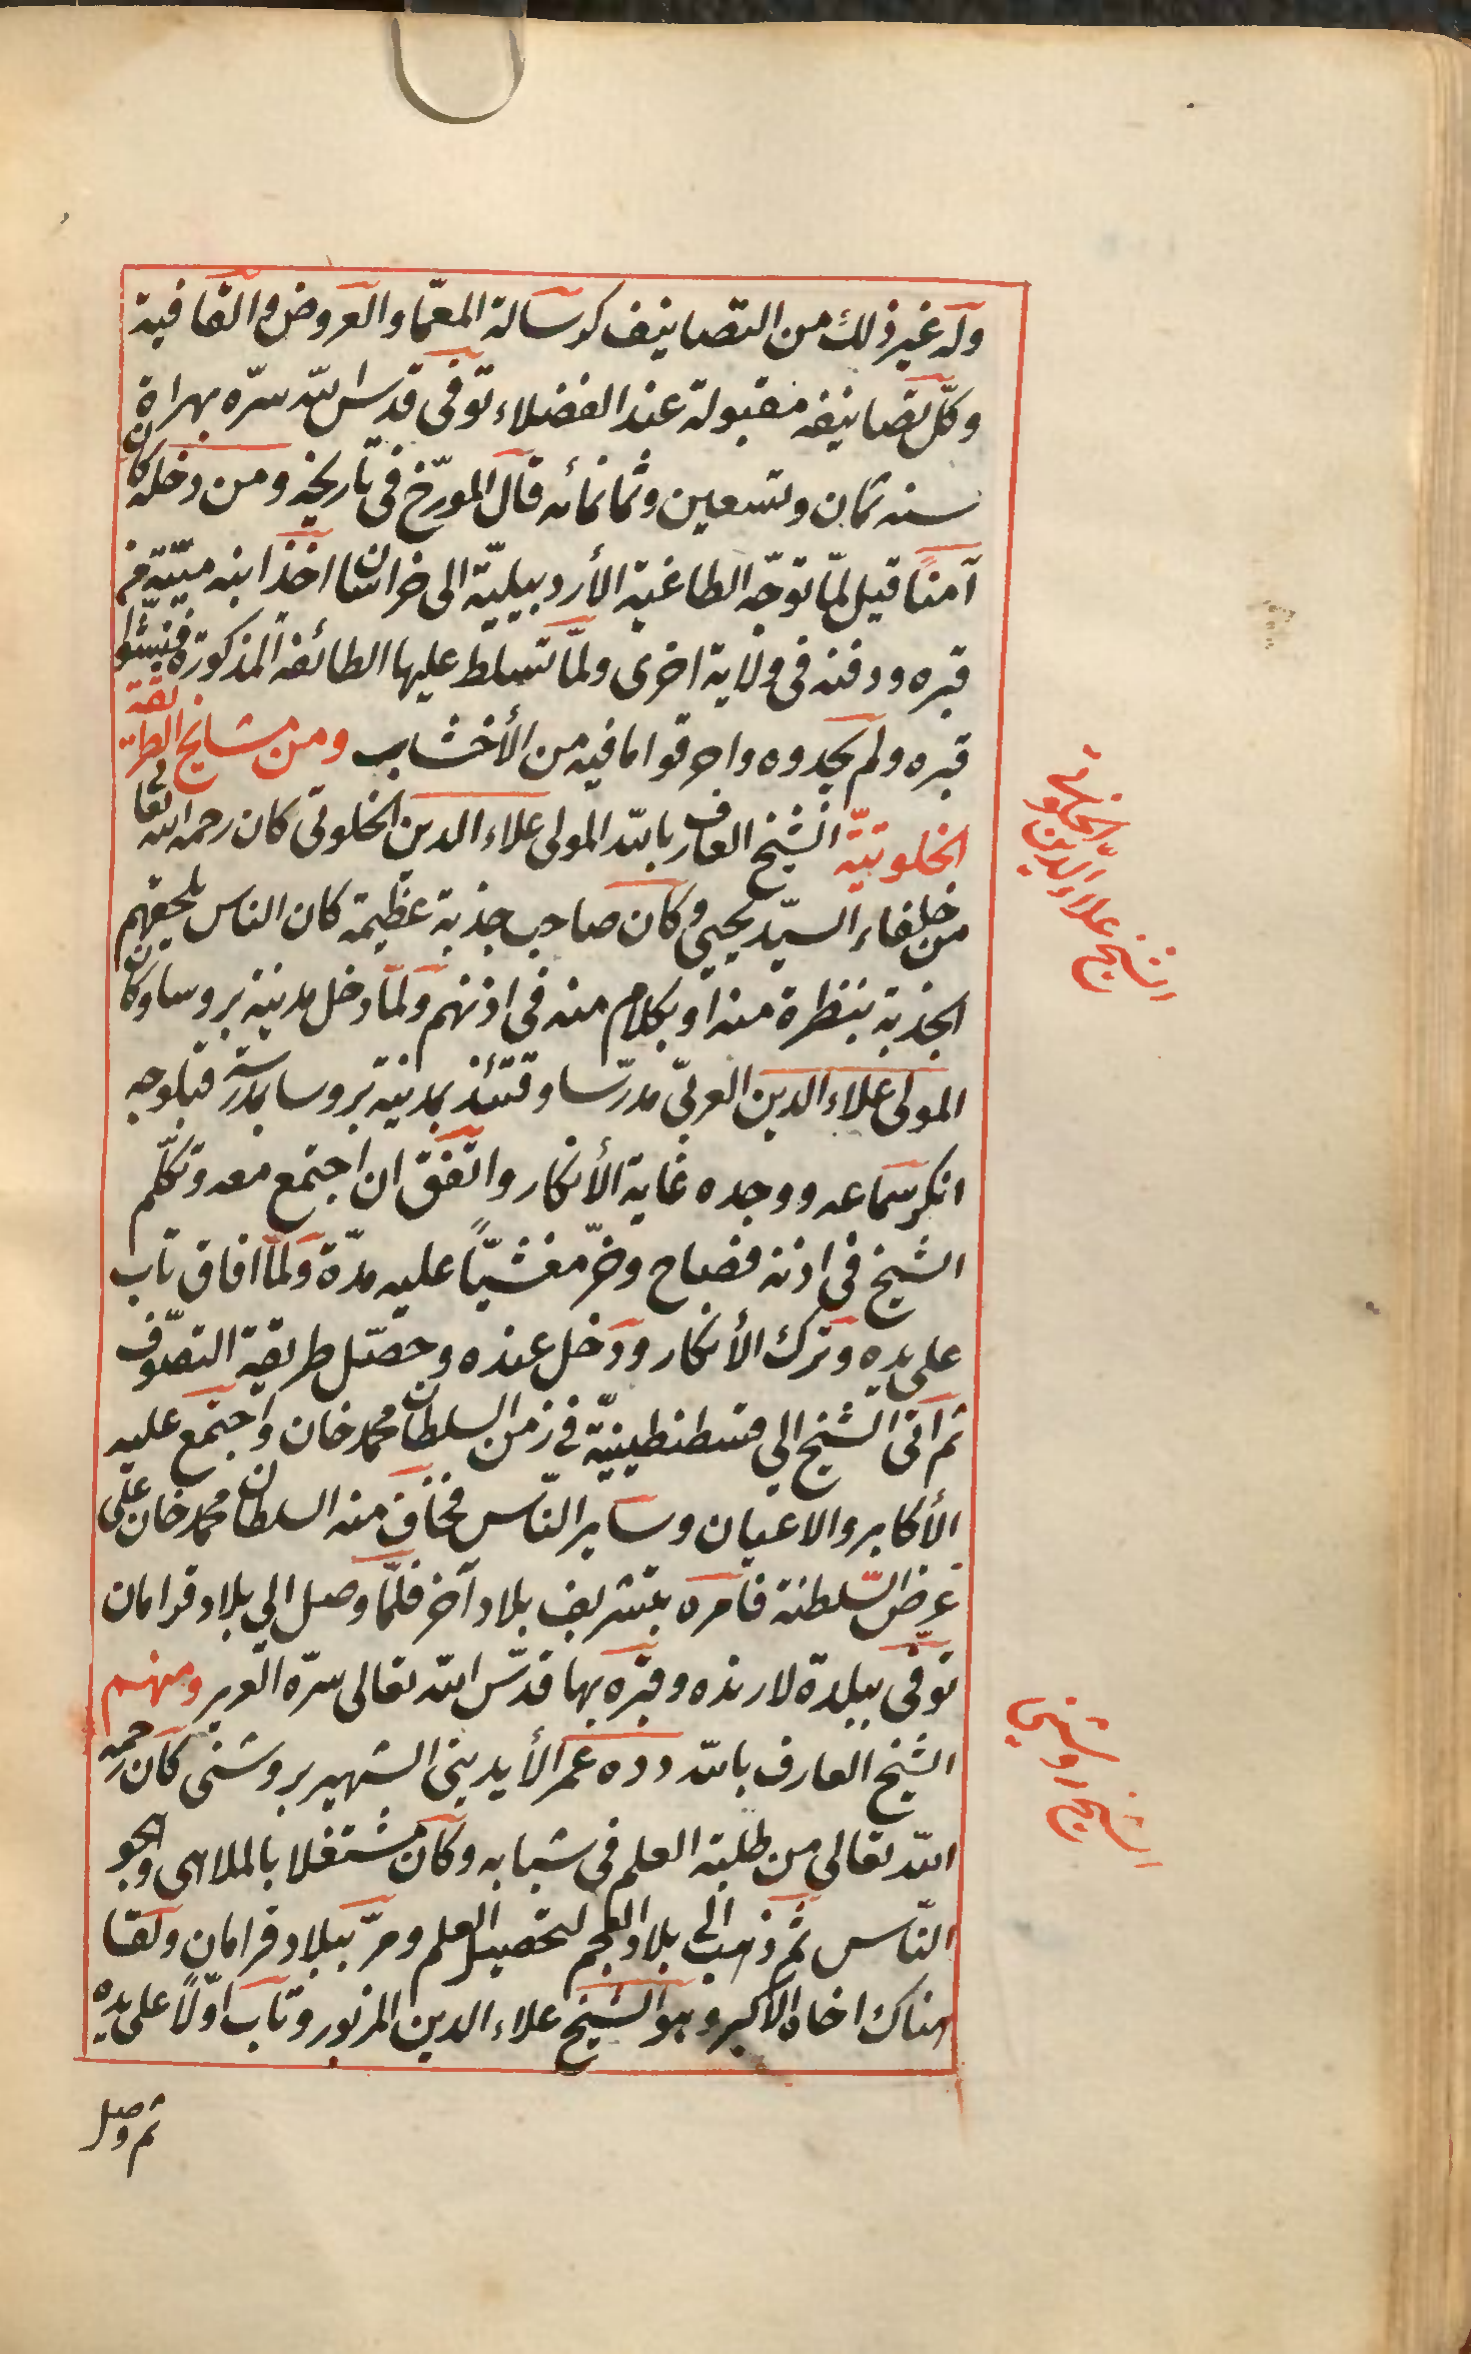 وله غير ذلك من التصانيف كرسالة المعمّا والعروض والقافية
وكلّ تصانيفه مقبولة عند الفضلاء توفى قدس الله سرّه بهراة
سنه ثمان وتسعين وثمانمائه قال المورّخ فى تاريخه ومن دخله كان
آمنًا قيل لمّا توجّه الطاغية الأردبيليّة الى خراسان اخذ ابنه ميّته من
قبره ودفنه فى ولاية اخرى ولمّا تسلط عليها الطائفه المذكورة فتّشوا
قبره ولم يجدوه واحرقوا ما فيه من الأخشاب ومن مشايخ الطريقة
الخلوتيّة الشيخ العارف بالله المولى علاء الدين الخلوتى كان رحمه الله تعالى
من خلفاء السيّد يحيى وكان صاحب جذبة عظيمة كان الناس يلحقهم
الجذبة بنظرة منه او بكلام منه فى اذنهم ولمّا دخل مدينة بروسا وكان
المولى علاء الدين العربىّ مدرّسا وقتئذ بمدينة بروسا بمدرسة قبلوجه
انكر سماعه ووجده غاية الأنكار واتّفق ان اجتمع معه وتكلّم
الشيخ فى اذنه فصاح وخرّ مغشيًّا عليه مدّة ولمّا افاق تاب
على يده وترك الأنكار ودخل عنده وحصّل طريقة التصوّف
ثم اتى الشيخ الي قسطنطينيّة في زمن السلطان محمد خان واجتمع عليه
الأكابر والاعيان وساير النّاس فخاف منه السلطان محمد خان على
عرض السّلطنة فامره بتشريف بلاد آخر فلمّا وصل الي بلاد قرامان
توفى ببلدة لارنده وقبره بها قدّس الله تعالى سرّه العزيز ومنهم
الشيخ العارف بالله دده عمر الأيدينى الشهير بروشنى كان رحمه
الله تعالى من طلبة العلم فى شبابه وكان مشتغلا بالملاهى وهجو
النّاس ثم ذهب الى بلاد العجم لتحصيل العلم ومرّ ببلاد قرامان ولقا
هناك اخاه الأكبر وهو الشيخ علاء الدين المزبور وتاب اوّلًا على يده
ثم وصل
الشيخ علاء الدين الخلوتى
الشيخ روشنى